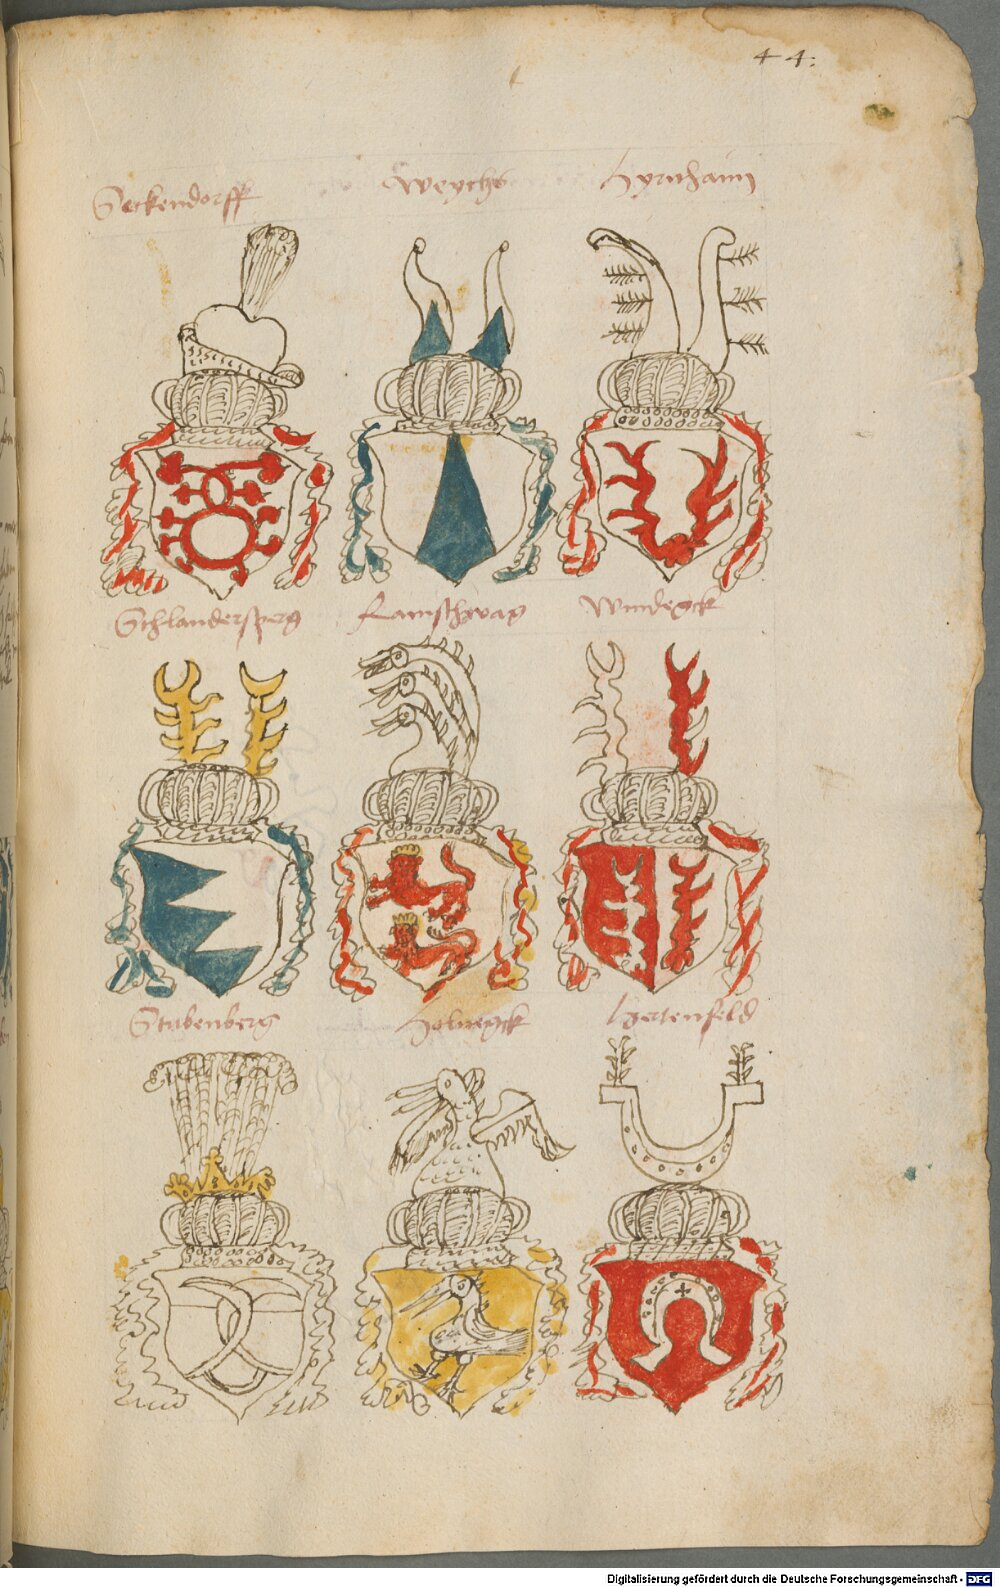 44.
Seckendorff Weychs Hyrnhaim
Schlandersperg Ramschwag Windegck
Stubenberg Holnegck Hertenfeld
Digitalisierung gefördert durch die Deutsche Forschungsgemeinschaft - DFG